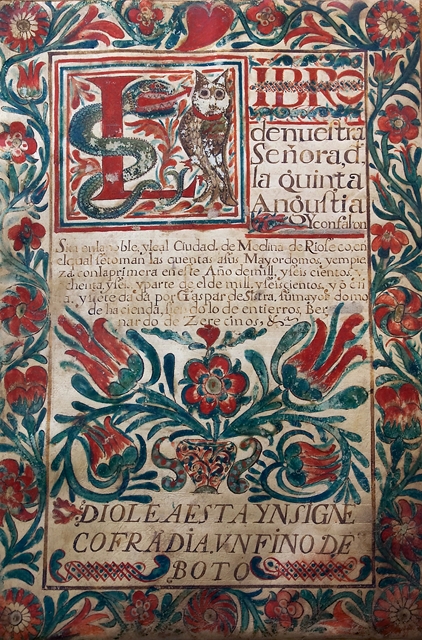 LIBRO
de nueſtra
Señora, d,
la Quinta
Anguſtia
Y confalon
en la noble, y leal Ciudad, de Medina de Rioſeco, en
el qual ſe toman las quentas a ſus Mayordomos, y empie
za, con la primera en eſte Año de mill, y ſeis cientos,
chenta, y ſeis, y parte de el de mill, y ſeiscientos, y o
ta, y ſiete dada por Gaſpar de ſu mayor domo
de hacienda, ſiendo lo de entierros, Ber
nardo de Zerecinos,
DIOLE A ESTA YNSIGNE
COFRADIA, VN FINO DE
BOTO